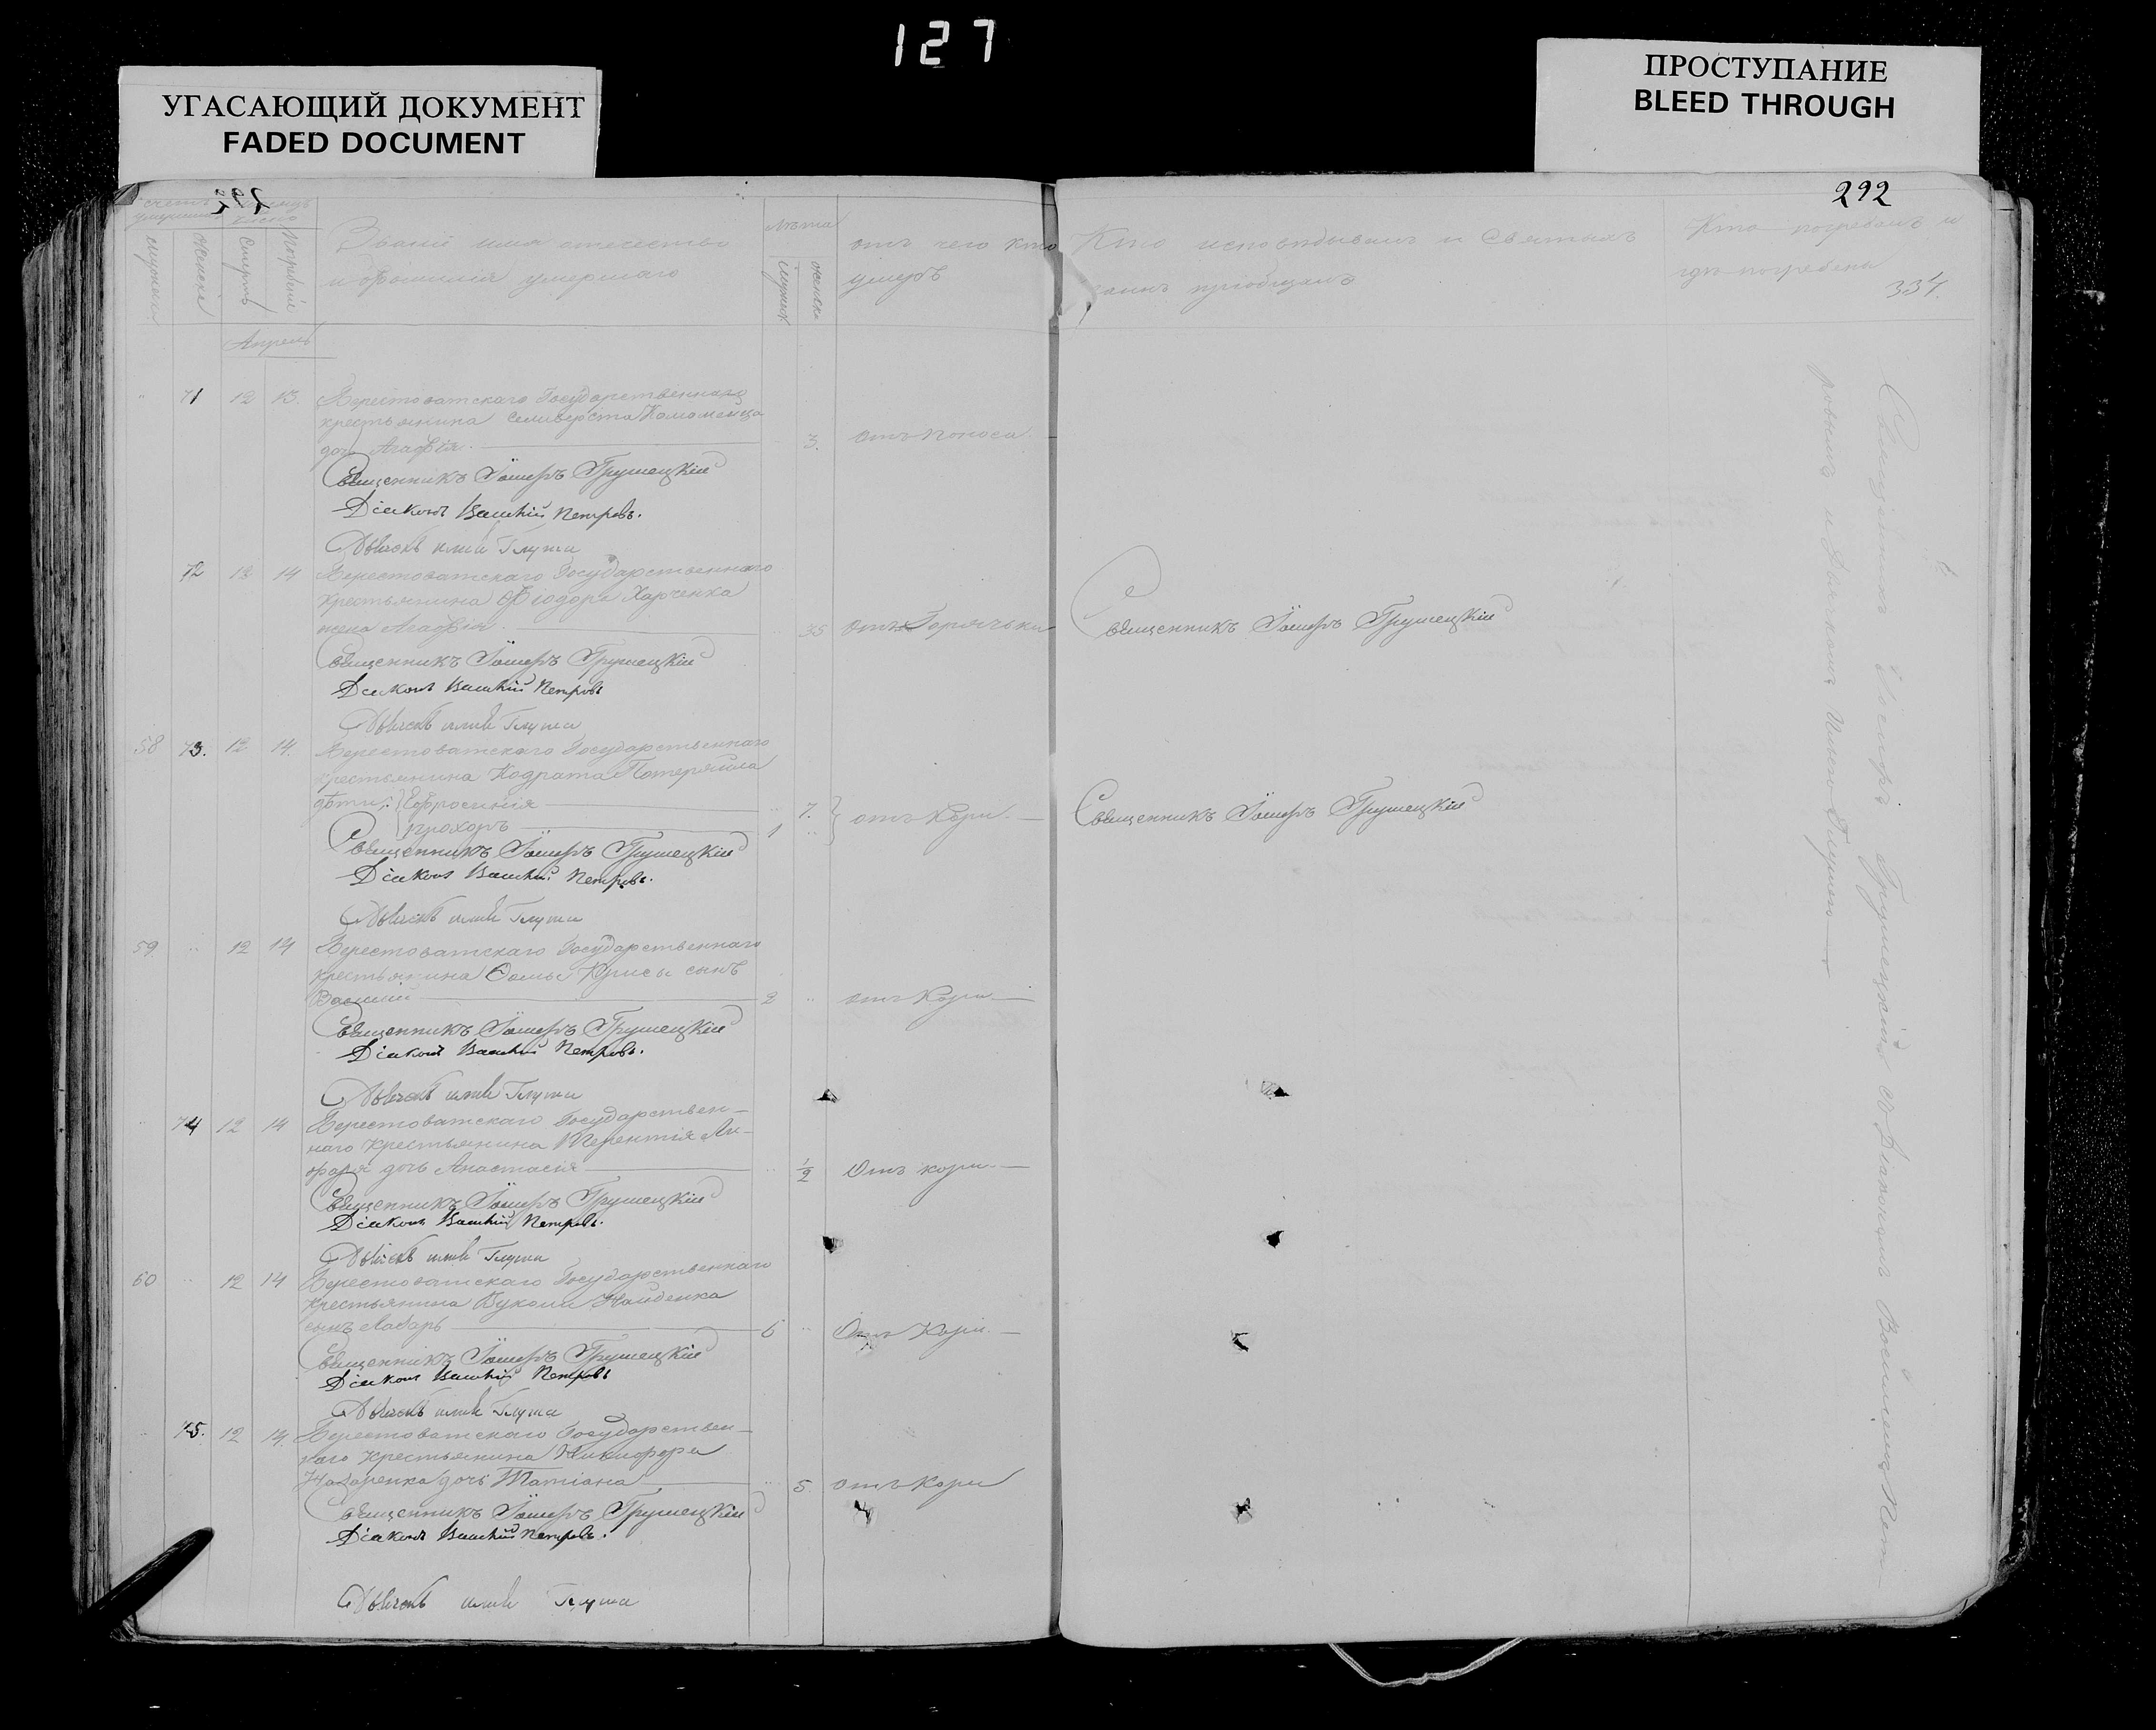 127
УГАСАЮЩИЙ ДОКУМЕНТ
FADED DOCUMENT
ПРОСТУПАНИЕ
BLEED THROUGH
292
334.
Счетъ умершихъ
Мѣсяцъ число
мужска
женска
Смерть
Погребеніе
Званіе имя отечество
и фамилія умершаго
Лѣта
мужск
женска
отъ чего кто
умеръ
Кто исповѣдывалъ и Святыхъ
таинъ пріобщалъ
Кто погребалъ и
гдѣ погребены
Апрель
71 12 13. Берестоватскаго Государственнаго
крестьянина Селиверста Коломейца
дочь Агафія. 3. отъ поноса
Священникъ Іосифъ Грушецкій
Діаконъ Василій Петровъ.
Дьячокъ Глуши
72 12 14 Берестоватскаго Государственнаго
крестьянина Ѳіодора Харченка
жена Агафія. 35 отъ Горячьки
Священникъ Іосифъ Грушецкій
Священникъ Іосифъ Грушецкій
Діаконъ Василій Петровъ
Дьячокъ Глуши
58 73. 12 14. Берестоватскаго Государственнаго
крестьянина Кодрата Потеряйла
дѣти: Ефросинія 7. отъ Кори
Прохоръ 1
Священникъ Іосифъ Грушецкій
Священникъ Іосифъ Грушецкій
Діаконъ Василій Петровъ.
Дьячокъ Глуши
59 12 14 Берестоватскаго Государственнаго
крестьянина Ѳомы Крисы сынъ
Василій 2 отъ Кори
Священникъ Іосифъ Грушецкій
Діаконъ Василій Петровъ.
Дьячокъ Глуши
74 12 14 Берестоватскаго Государствен-
наго крестьянина
дочь Анастасія 1/2 Отъ кори
Священникъ Іосифъ Грушецкій
Діаконъ Василій Петровъ.
Дьячокъ Глуши
60 12 14 Берестоватскаго Государственнаго
крестьянина Вуколи Найденка
сынъ 6 Отъ Кори
Священникъ Іосифъ Грушецкій
Діаконъ Василій Петровъ
Дьячокъ Глуши
75. 12 14. Берестоватскаго Государствен-
наго крестьянина Никифора
Назаренка дочь Татіана 5 отъ Кори
Священникъ Іосифъ Грушецкій
Діаконъ Василій Петровъ.
Дьячокъ Глуши
Священникъ Іосифъ Грушецкій съ Діакономъ Василіемъ Пет-
ровымъ и Дьячкомъ Ильею Глушею